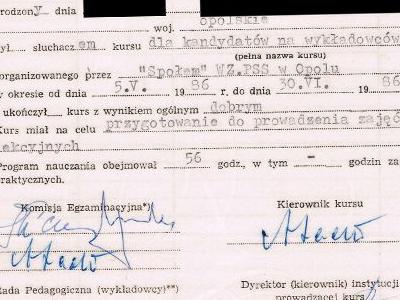 rodzony dnia
woj. opolskie
był słuchaczem kursu dla kandydatów na wykładowców
(pełna nazwa kursu)
organizowanego przez "Społem" WZ.PSS w Opolu
w okresie od dnia 5.V. 1986 r. do dnia 30.VI. 1986
ukończył kurs z wynikiem ogólnym dobrym
Kurs miał na celu przygotowanie do prowadzenia zajęć
lekcyjnych
Program nauczania obejmował 56 godz., w tym - godzin za
praktycznych.
Komisja Egzaminacyjna*)
Kierownik kursu
Rada Pedagogiczna (wykładowcy)**)
Dyrektor (kierownik) instytucji
prowadzącej kurs